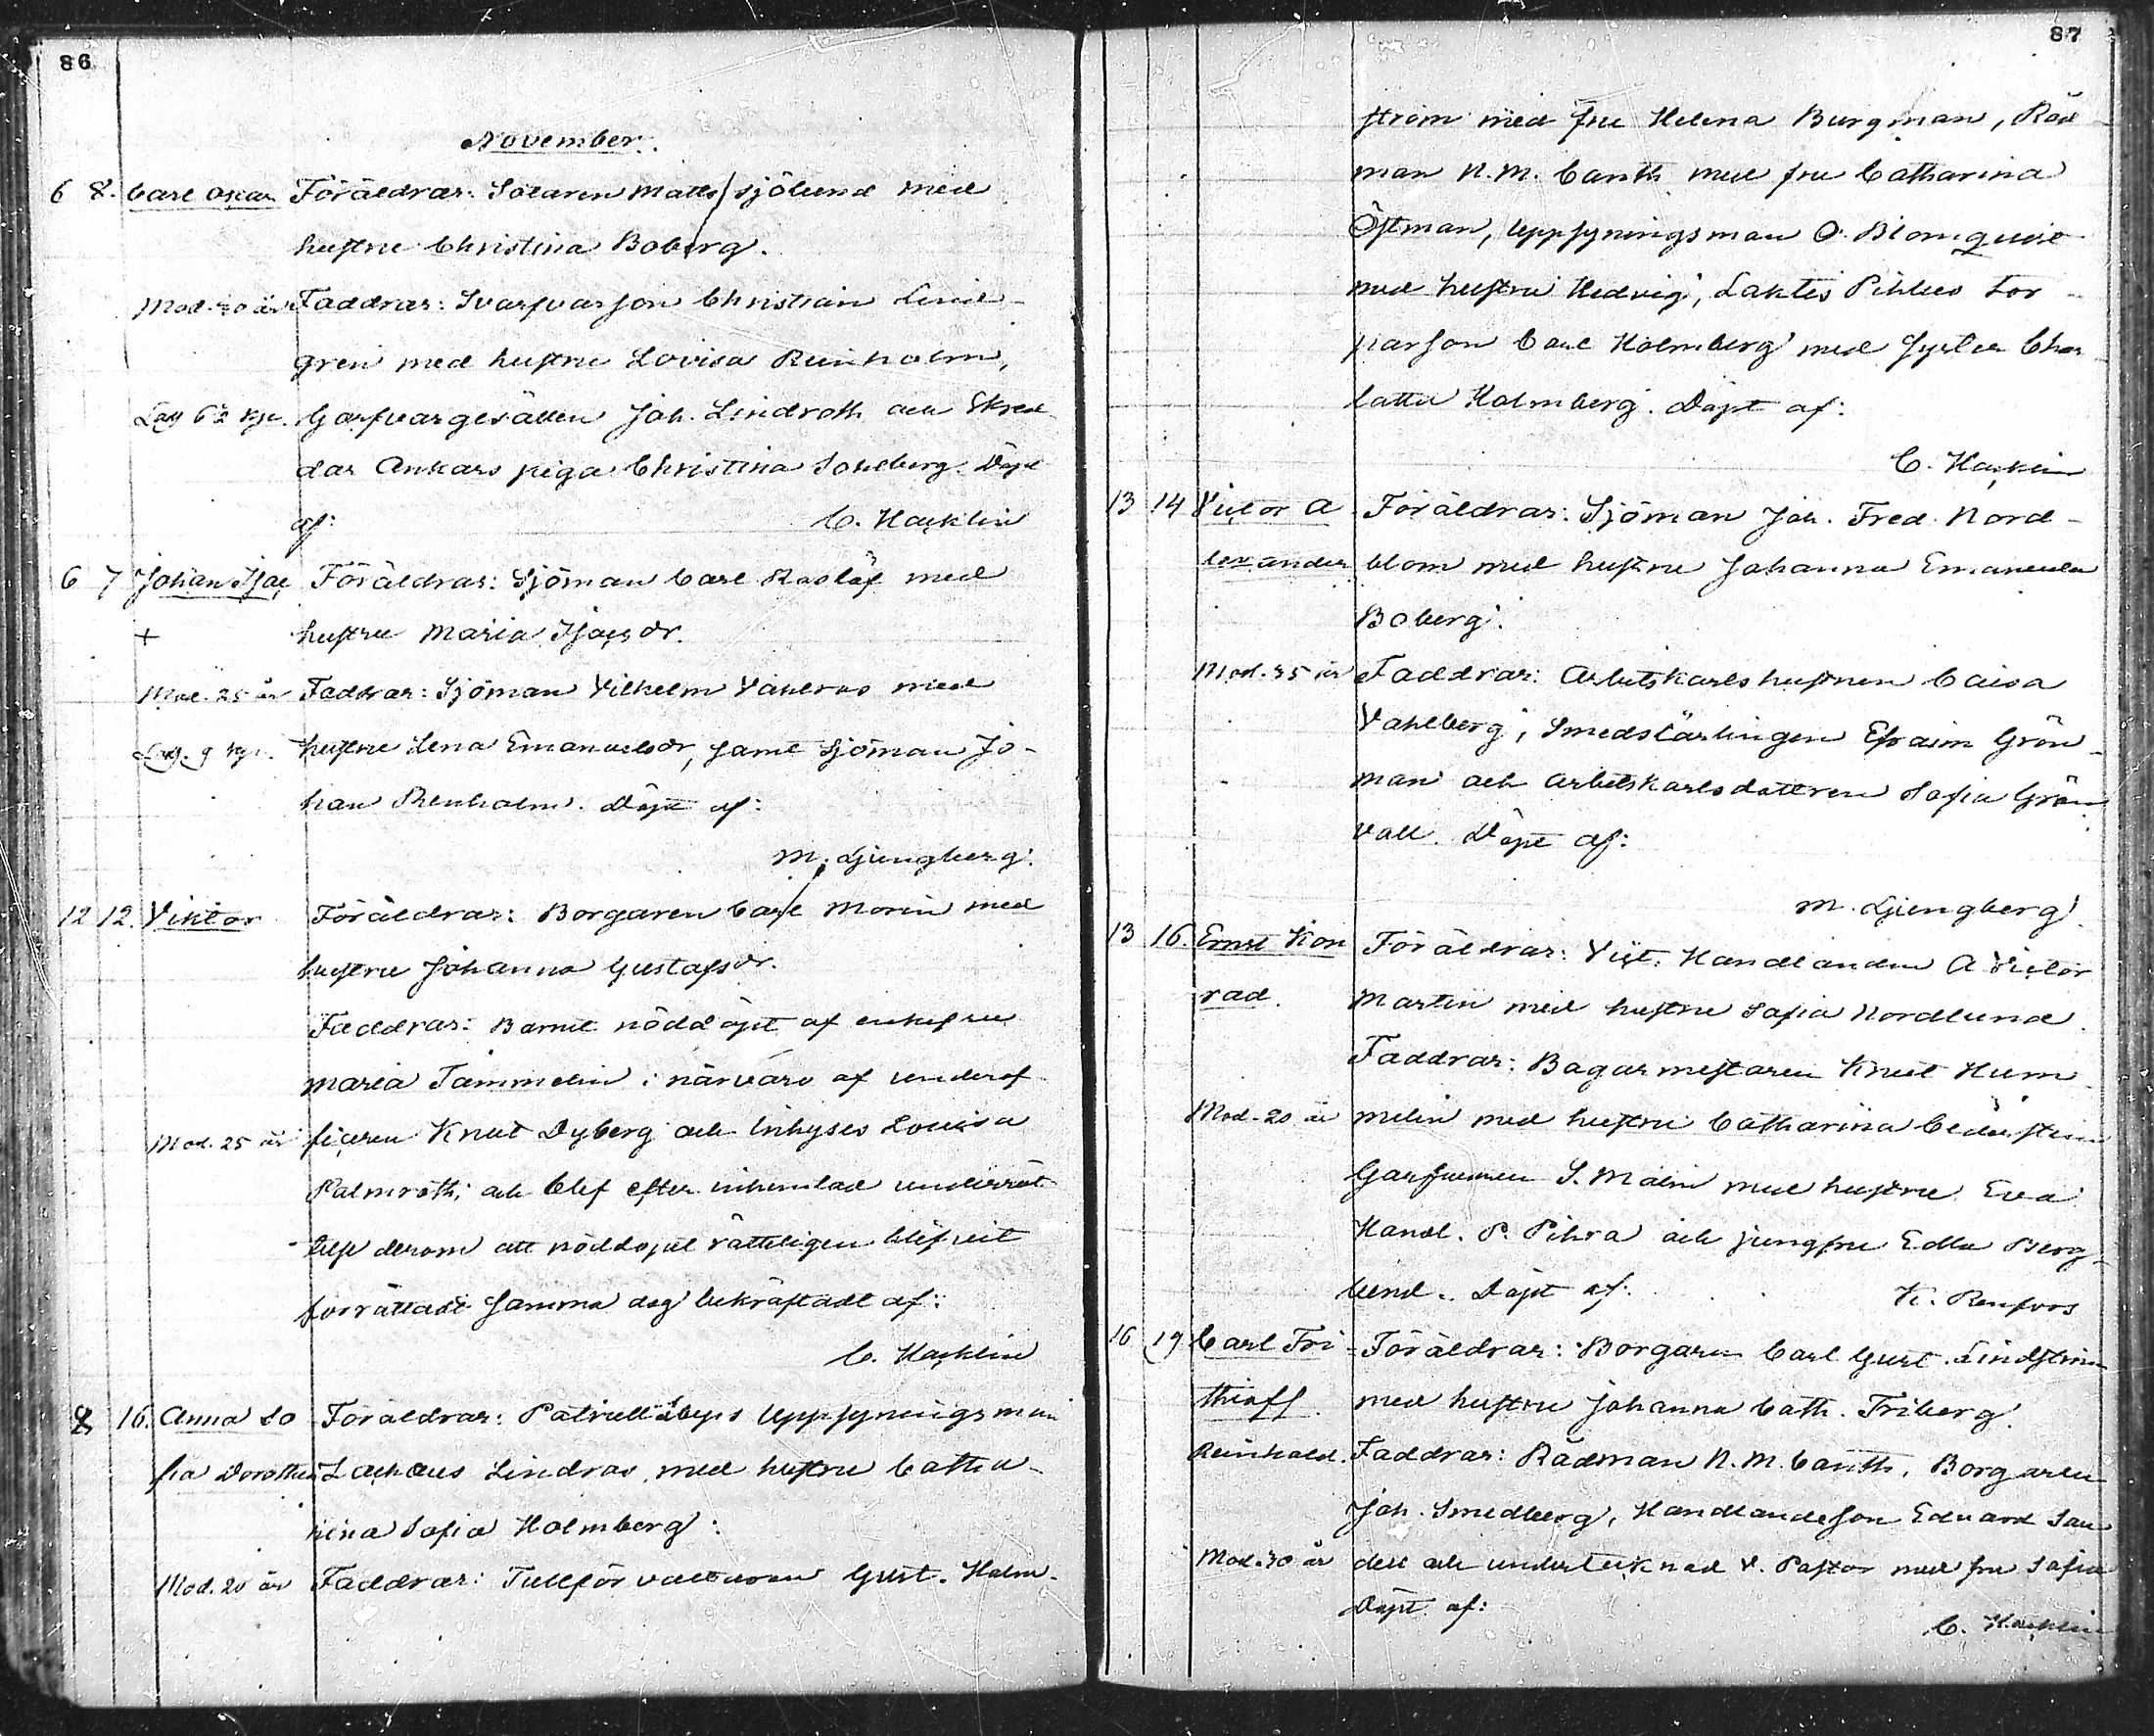 86
November.
6 8. Carl Oskar Föräldrar: Sotaren Matts Sjölund med
hustru Christina Boberg.
Mod. 30 år Faddrar: Svarfvarson Christian Lind-
gren med hustru Lovisa Reinholm,
Garfvargesällen Joh. Lindroth och Skred
dar Ankars piga Christina Sohlberg. Döpt
af: C. Hacklin
6 7 Johan Isac Föräldrar: Sjöman Carl Roslöf med
+ hustru Maria Isacsdr.
Mod. 25 år Faddrar: Sjöman Vilhelm Vahlroos med
hustru Lena Emanuelsdr, samt Sjöman Jo-
han Renholm. Döpt af:
M. Ljungberg.
12 12. Viktor Föräldrar: Borgaren Carl Morin med
hustru Johanna Gustafsdr.
Faddrar: Barnet nöddöpt af enkefru
Maria Tammelin i närvaro af underof
Mod. 25 år ficeren Knut Dyberg och Inhyses Lovisa
Palmroth, och blef efter inhemtad underrät
telse derom att nöddopet rätteligen blifvit
förrättadt samma dag bekräftadt af:
C. Hacklin
8 16. Anna So Föräldrar: Patrull Uppsyningsman
fia Dorothea Zachæus Lindroos med hustru Catha-
rina Sofia Holmberg.
Mod. 20 år Faddrar: Tullförvaltaren Gust. Holm-
87
ström med fru Helena Burgman, Råd
man N. M. Canth med fru Catharina
Östman, Uppsyningsman O. Blomqvist
med hustru Hedvig, Laktis Pihlus Tor-
parson Carl Holmberg med syster Char
lotta Holmberg. Döpt af:
C. Hacklin
13 14 Victor A Föräldrar: Sjöman Joh. Fred. Nord-
lexander blom med hustru Johanna Emanuela
Boberg.
Mod. 35 år Faddrar: Arbetskarlshustrun Caisa
Vahlberg, Smedslärlingen Efraim Grön-
man och arbetskarlsdottren Sofia Grön
vall. Döpt af:
M. Ljungberg
13 16. Ernst Kon Föräldrar: Vict. Handlanden A Victor
rad. Martin med hustru Sofia Nordlund.
Faddrar: Bagarmästaren Knut Hum
Mod. 20 år melin med hustru Catharina Cederström
Garfvaren S. Malin med hustru Eva
Handl. P. Pihra och jungfru Edla Berg-
lund. Döpt af: K. Renfors
16 19 Carl Fri Föräldrar: Borgaren Carl Gust. Lindström
thioff med hustru Johanna Cath. Friberg.
Reinhold. Faddrar: Rådman N. M. Canth, Borgaren
Joh. Smedberg, Handlandeson Eduard San
Mod. 30 år dell och undertecknad V. Pastor med fru Sofia
Döpt af:
C. Hacklin